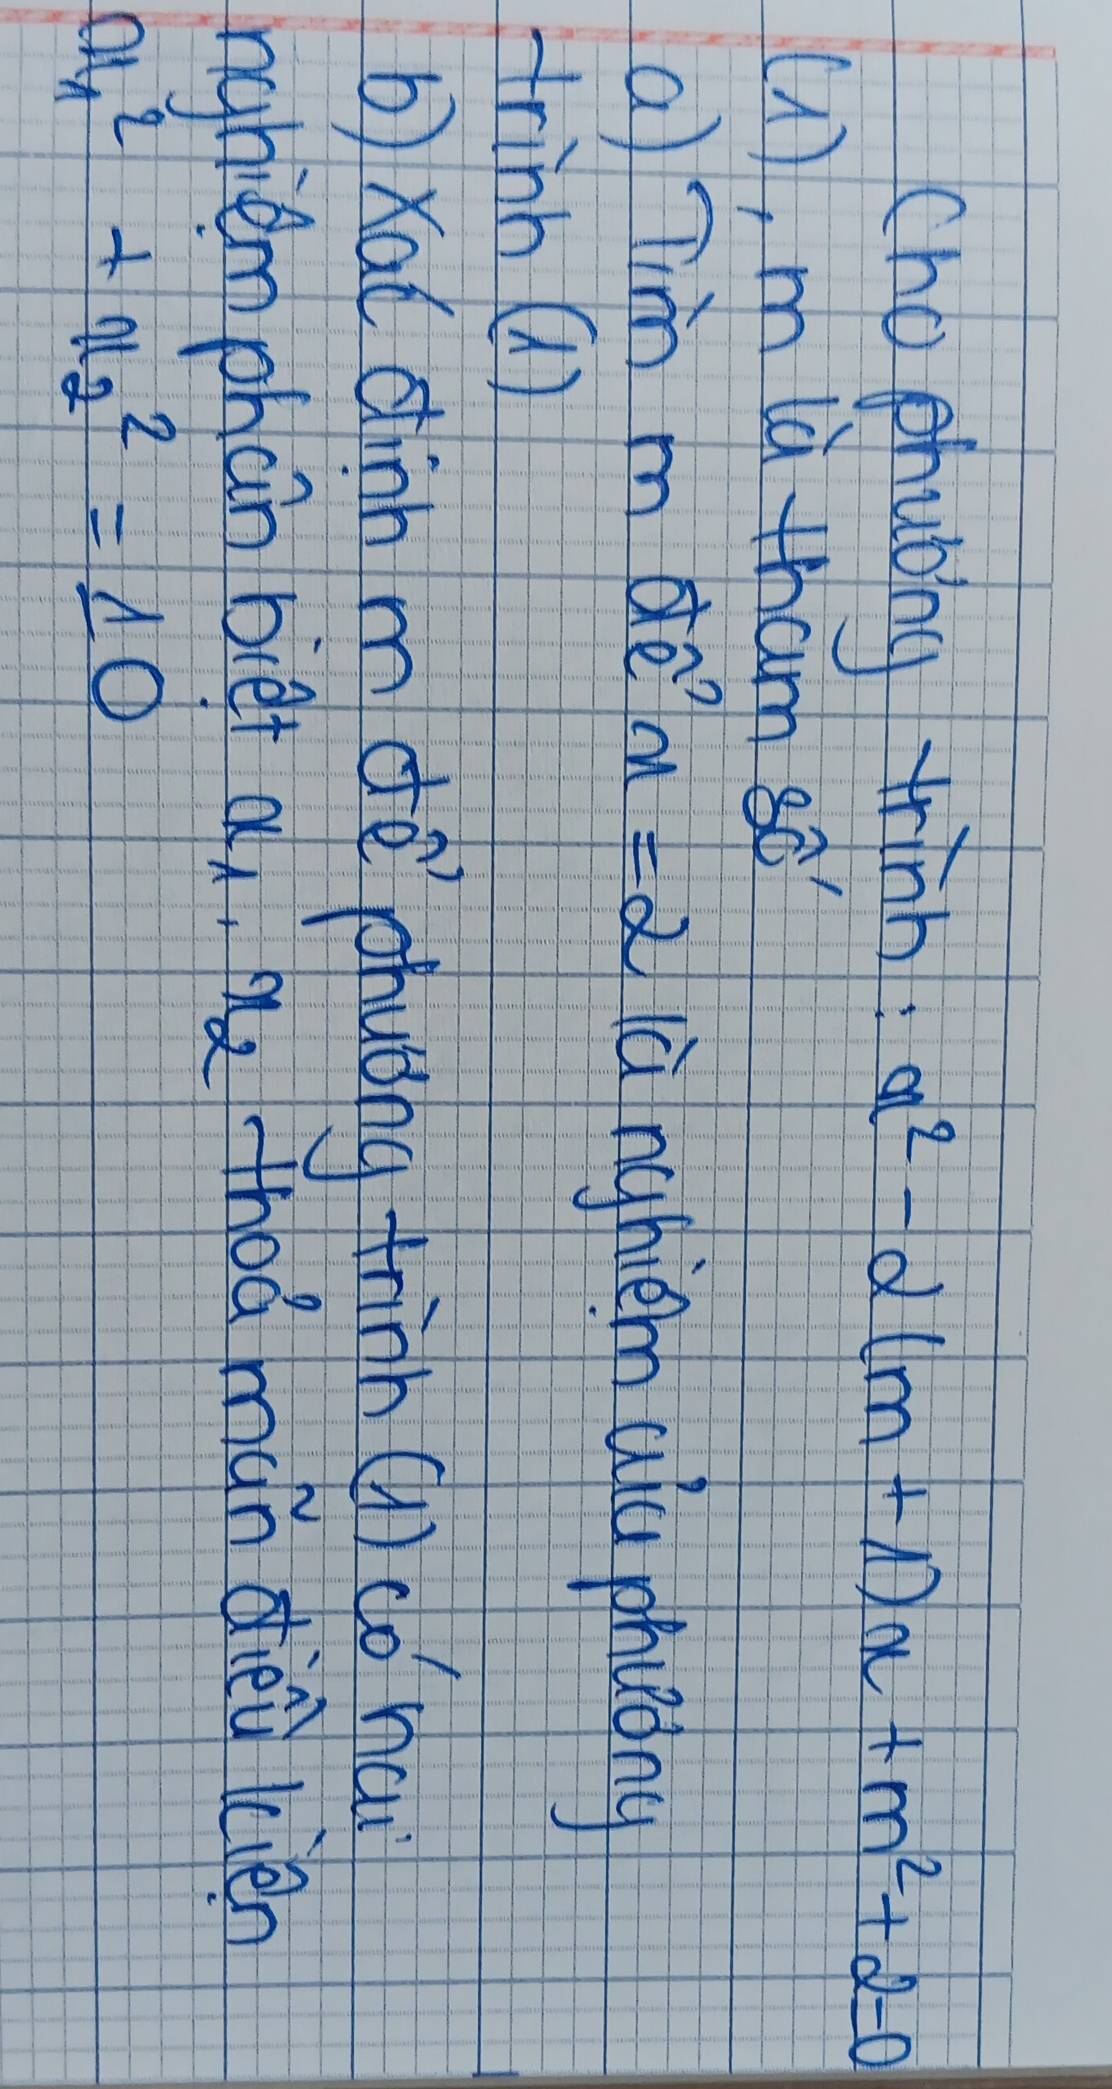 Cho phương trình : x² - 2(m + 1)x + m² + 2 = 0
(1), m là tham số
a) Tìm m để x = 2 là nghiệm của phương
trình (1)
b) Xác định m để phương trình (1) có hai
nghiệm phân biệt x₁, x₂ thoả mãn điều kiện
x₁² + x₂² = 10